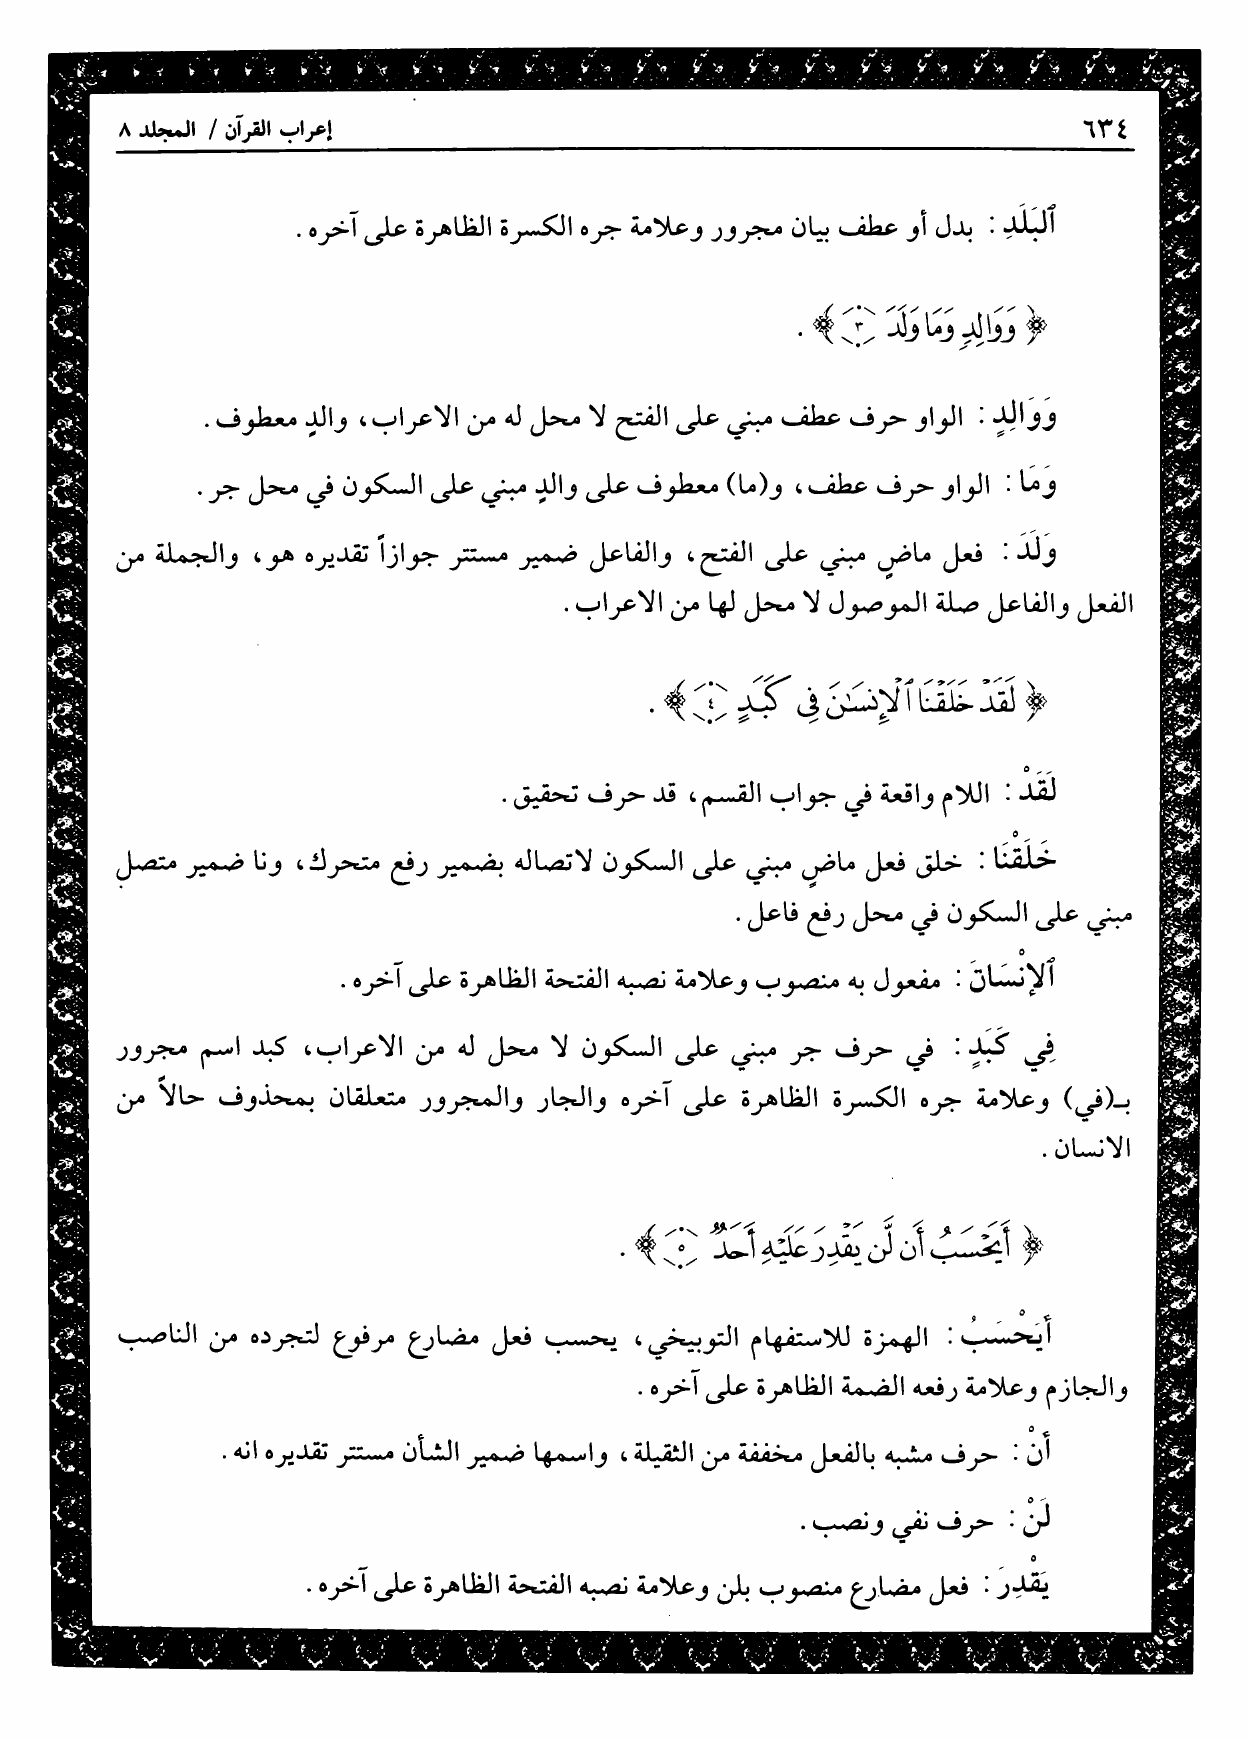 ٦٣٤
إعراب القرآن / المجلد ٨
ٱلبَلَدِ : بدل أو عطف بيان مجرور وعلامة جره الكسرة الظاهرة على آخره .
﴿ وَوَالِدٍ وَمَا وَلَدَ ٣ ﴾ .
وَوَالِدٍ : الواو حرف عطف مبني على الفتح لا محل له من الاعراب، والدٍ معطوف .
وَمَا : الواو حرف عطف، و(ما) معطوف على والدٍ مبني على السكون في محل جر .
وَلَدَ : فعل ماضٍ مبني على الفتح، والفاعل ضمير مستتر جوازاً تقديره هو، والجملة من
الفعل والفاعل صلة الموصول لا محل لها من الاعراب .
﴿ لَقَدْ خَلَقْنَا ٱلْإِنسَٰنَ فِى كَبَدٍ ٤ ﴾ .
لَقَدْ : اللام واقعة في جواب القسم، قد حرف تحقيق .
خَلَقْنَا : خلق فعل ماضٍ مبني على السكون لاتصاله بضمير رفع متحرك، ونا ضمير متصل
مبني على السكون في محل رفع فاعل .
ٱلإنْسَانَ : مفعول به منصوب وعلامة نصبه الفتحة الظاهرة على آخره .
فِي كَبَدٍ : في حرف جر مبني على السكون لا محل له من الاعراب، كبد اسم مجرور
بـ(في) وعلامة جره الكسرة الظاهرة على آخره والجار والمجرور متعلقان بمحذوف حالاً من
الانسان .
﴿ أَيَحْسَبُ أَن لَّن يَقْدِرَ عَلَيْهِ أَحَدٌ ٥ ﴾ .
أَيَحْسَبُ : الهمزة للاستفهام التوبيخي، يحسب فعل مضارع مرفوع لتجرده من الناصب
والجازم وعلامة رفعه الضمة الظاهرة على آخره .
أنْ : حرف مشبه بالفعل مخففة من الثقيلة، واسمها ضمير الشأن مستتر تقديره انه .
لَنْ : حرف نفي ونصب .
يَقْدِرَ : فعل مضارع منصوب بلن وعلامة نصبه الفتحة الظاهرة على آخره .